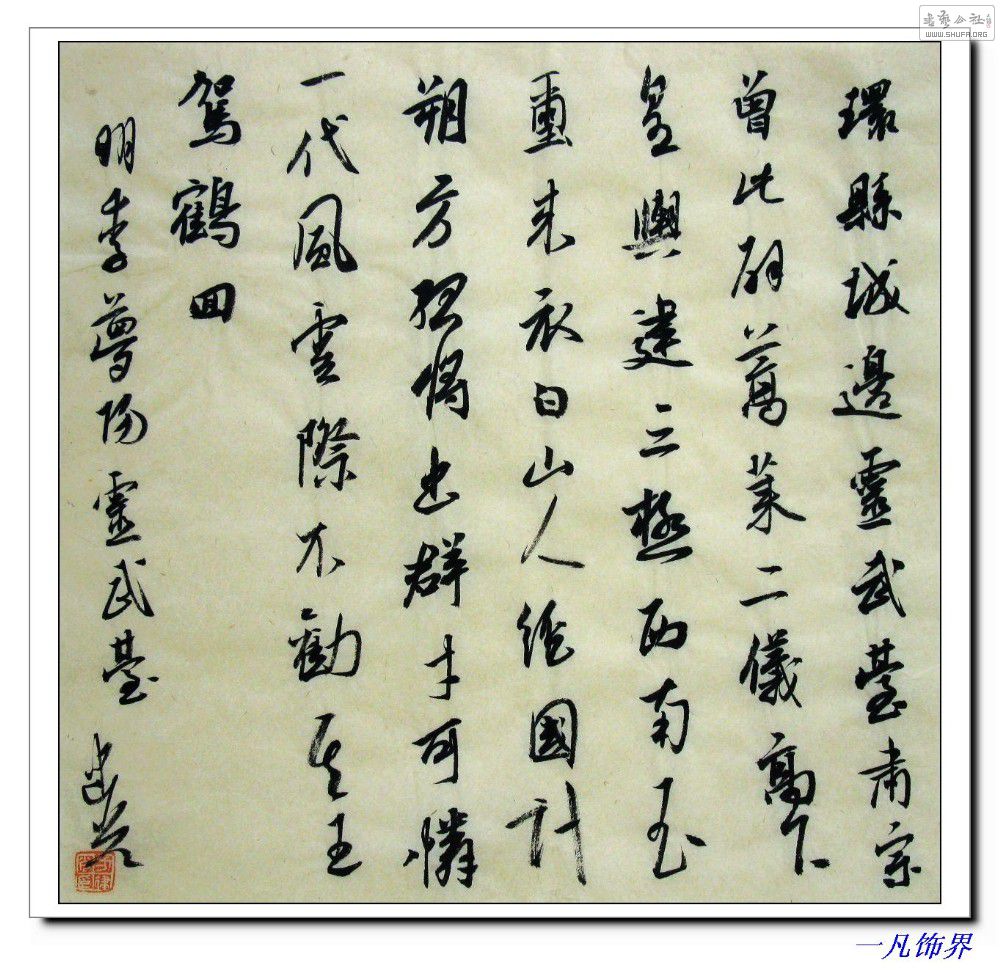 書藝公社
WWW.SHUFA.ORG
環縣城邊靈武臺肅宗
曾此辟蒿萊二儀高下
皇輿建三極西南玉
璽來衣白山人經國計
朔方孤將出群才可憐
一代風雲際不勸君王
駕鶴回
明李夢陽靈武臺
一凡饰界